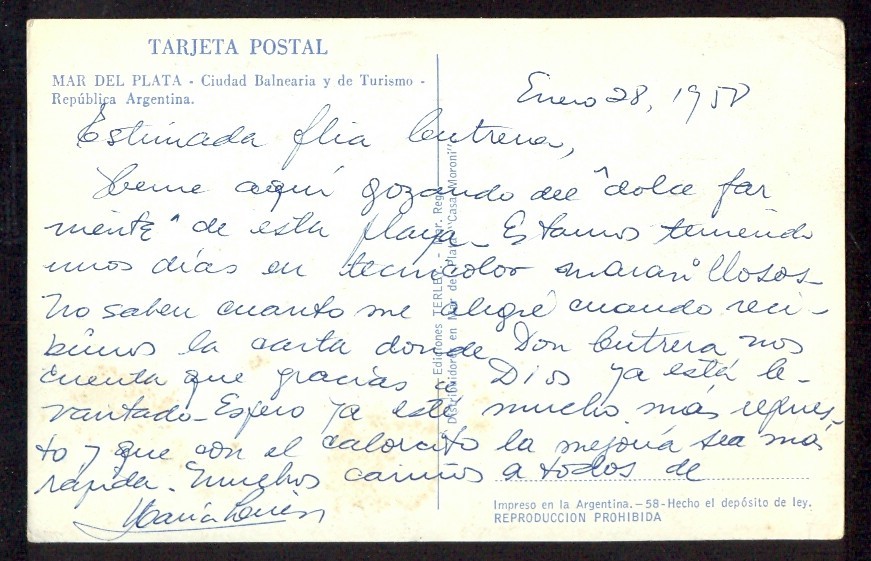 TARJETA POSTAL
MAR DEL PLATA - Ciudad Balnearia y de Turismo -
República Argentina.
Enero 28, 1958
Estimada flia Cutrera,
Heme aquí gozando del "dolce far
niente" de esta playa_ Estamos teniendo
unos días en tecnicolor maravillosos_
No saben cuanto me alegré cuando reci-
bimos la carta donde Don Cutrera nos
cuenta que gracias a Dios ya está le-
vantado_ Espero ya esté mucho más repues-
to y que con el calorcito la mejoría sea más
rápida_ Muchos cariños a todos de
María
Ediciones TERLEY -
Distribuidores en Mar del Plata "Casa Moroni"
Impreso en la Argentina. - 58 - Hecho el depósito de ley.
REPRODUCCION PROHIBIDA